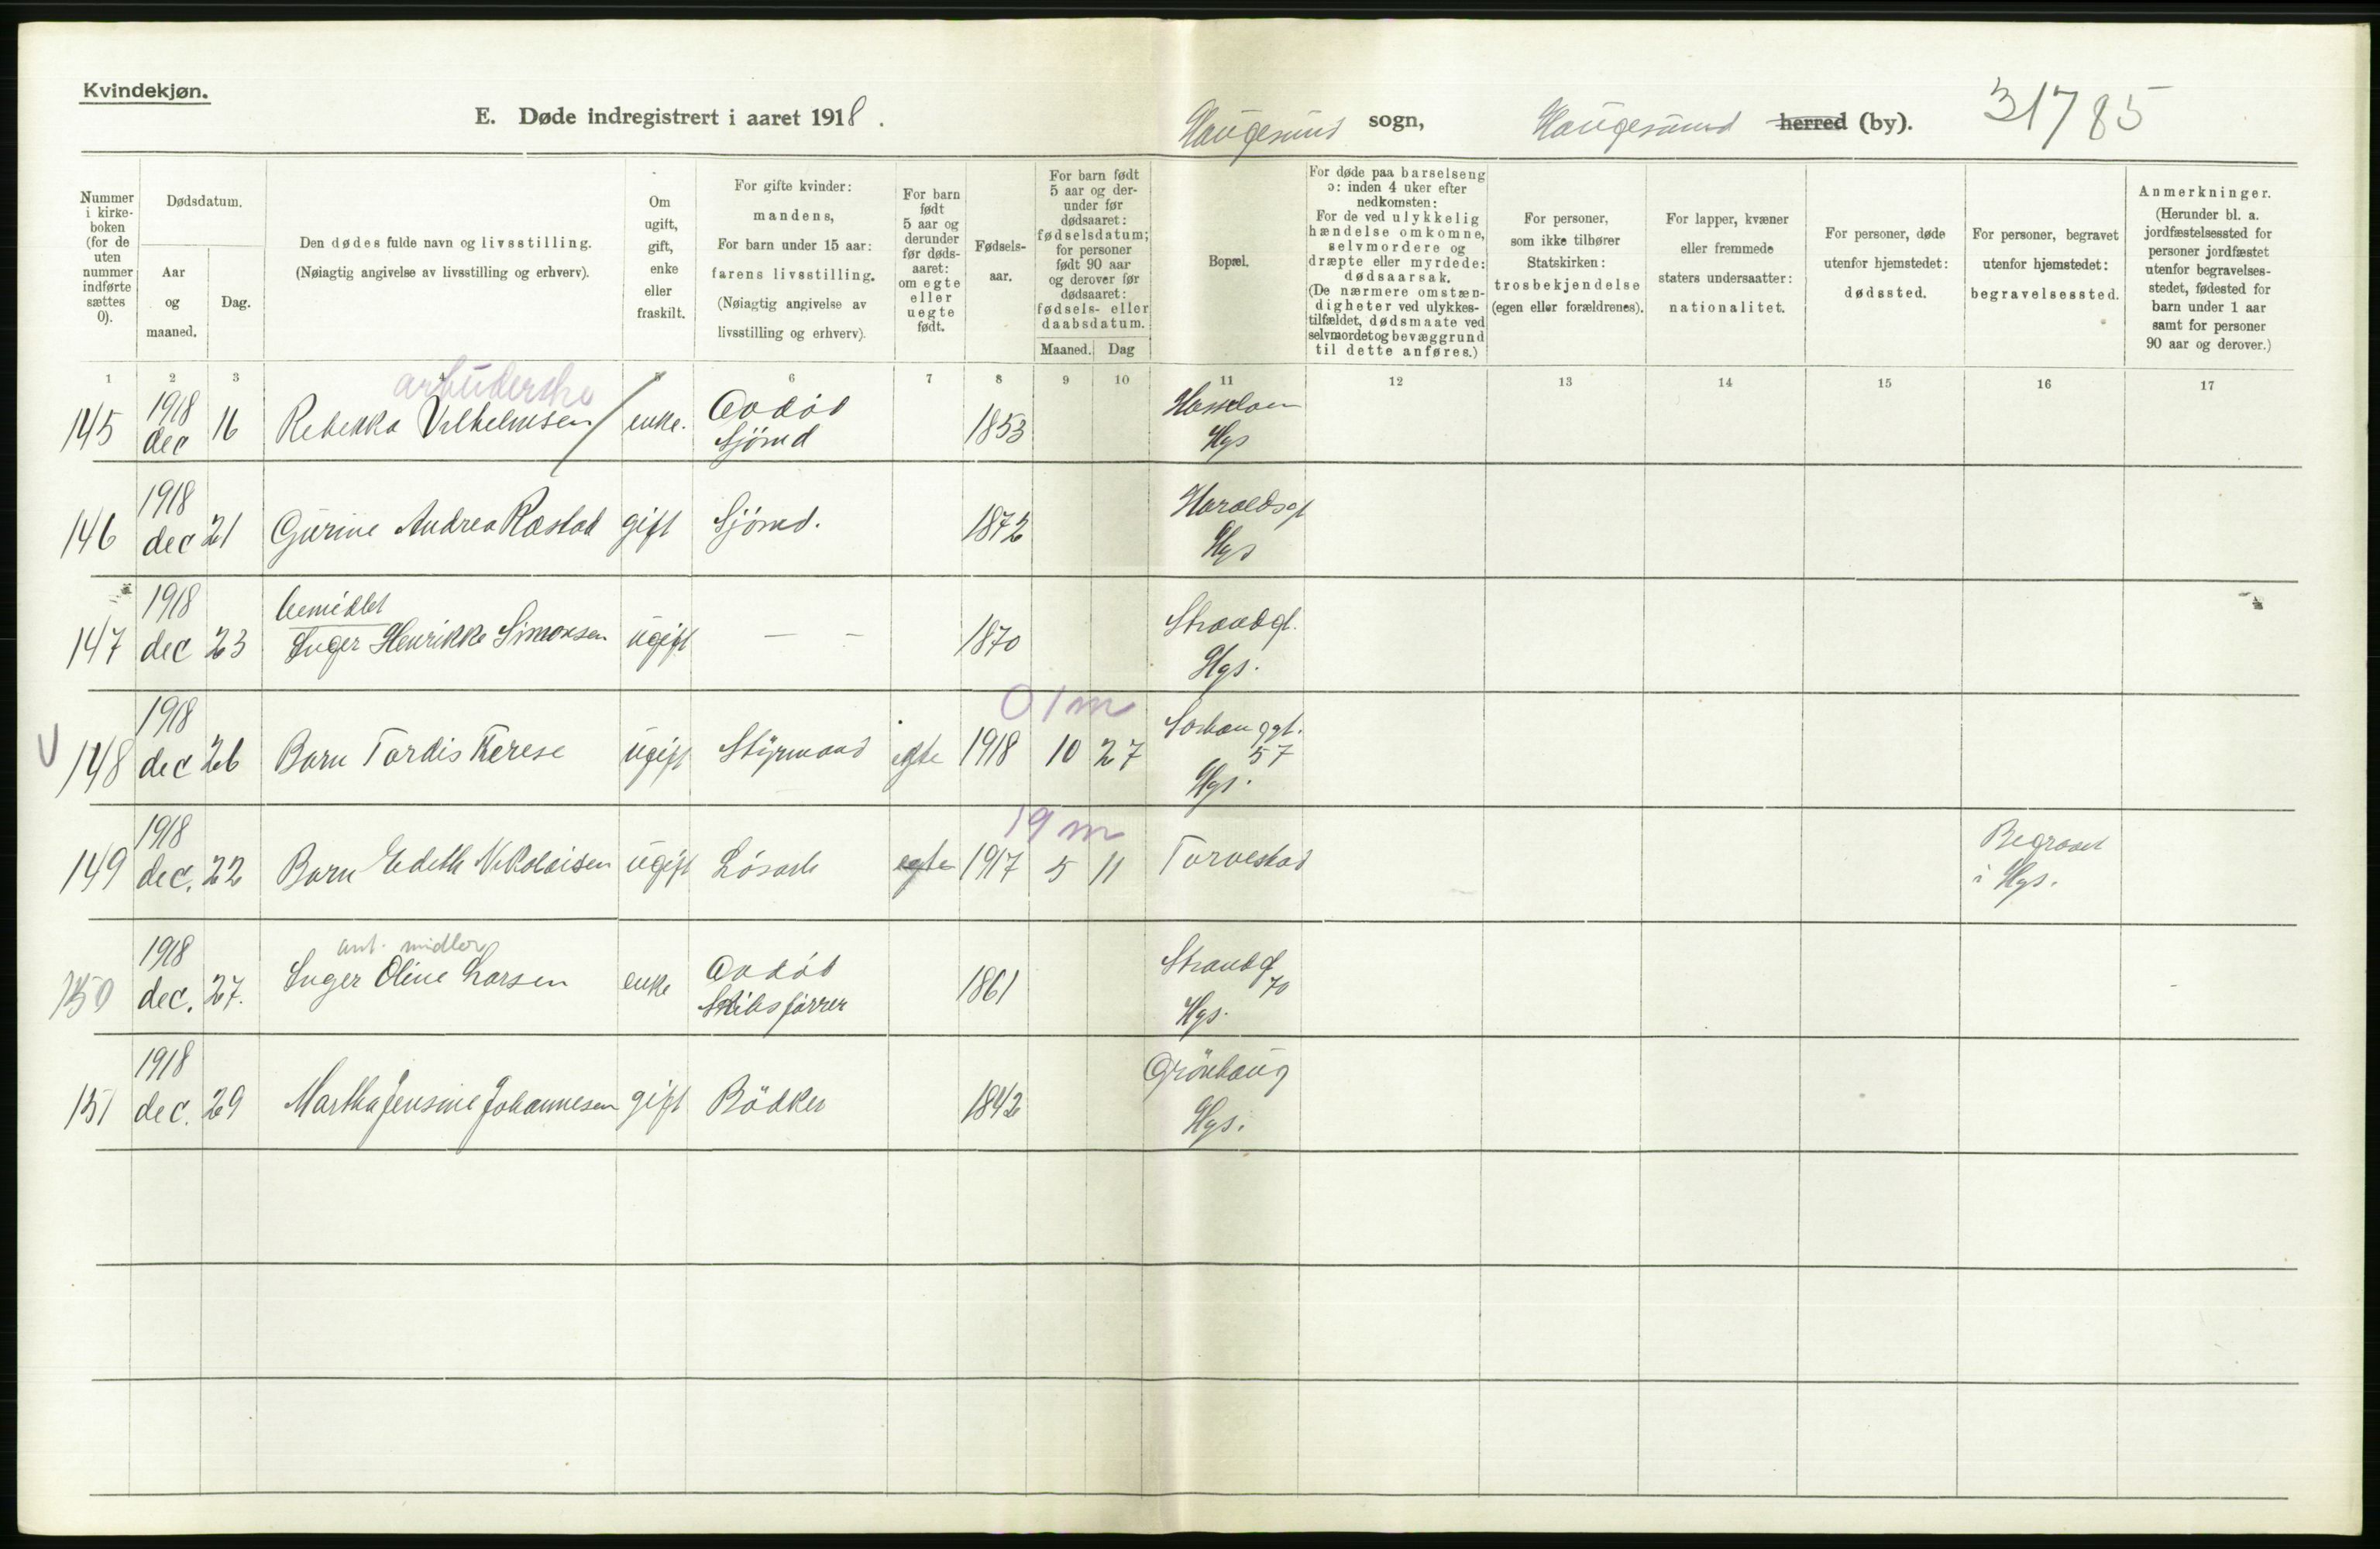 Kvindekjøn.
E. Døde indregistrert i aaret 1918.
Haugesund sogn, Haugesund herred (by).
31785
Nummer i kirke-boken (for de uten nummer indførte sættes 0).
Dødsdatum.
Aar og maaned.
Dag.
Den dødes fulde navn og livsstilling.
(Nøiagtig angivelse av livsstilling og erhverv).
Om ugift, gift, enke eller fraskilt.
For gifte kvinder: mandens,
For barn under 15 aar: farens livsstilling.
(Nøiagtig angivelse av livsstilling og erhverv).
For barn født 5 aar og derunder før døds-aaret: om egte eller uegte født.
Fødsels-aar.
For barn født 5 aar og der-under før dødsaaret: fødselsdatum; for personer født 90 aar og derover før dødsaaret: fødsels- eller daabsdatum.
Maaned. Dag
Bopæl.
For døde paa barselseng ɔ: inden 4 uker efter nedkomsten:
For de ved ulykkelig hændelse omkomne, selvmordere og dræpte eller myrdede: dødsaarsak.
(De nærmere omstæn-digheter ved ulykkes-tilfældet, dødsmaate ved selvmordet og bevæggrund til dette anføres.)
For personer, som ikke tilhører Statskirken: trosbekjendelse (egen eller forældrenes).
For lapper, kvæner eller fremmede staters undersaatter: nationalitet.
For personer, døde utenfor hjemstedet: dødssted.
For personer, begravet utenfor hjemstedet: begravelsessted.
Anmerkninger.
(Herunder bl. a. jordfæstelsessted for personer jordfæstet utenfor begravelses-stedet, fødested for barn under 1 aar samt for personer 90 aar og derover.)
1 2 3 6 7 8 9 10 11 12 13 14 15 16 17
arbeiderske
145 1918 dec 16 Rebekka Vilhelmsen enke. Avdöd Sjömd 1853 Hasseloen Hgs
146 1918 dec 21 Gurine Andrea Rastad gift Sjömd. 1872 Haraldsgt Hgs
bemidlet
147 1918 dec 23 Inger Henrikke Simonsen ugift — — 1870 Strandgt. Hgs.
0 1 m
V 148 1918 dec 26 Barn Tordis Terese ugift Styrmand egte 1918 10 27 57 Hgs.
19 m
149 1918 dec. 22 Barn Edith Nikolaisen ugift Lösarb egte 1917 5 11 Torvestad Begravet i Hgs.
midler
150 1918 dec. 27. Inger Oline Larsen enke Avdöd Skibsförrer 1861 Strandgt 70 Hgs.
151 1918 dec. 29 Martha Jensine Johannesen gift Bödker 1842 Grönhaug Hgs.